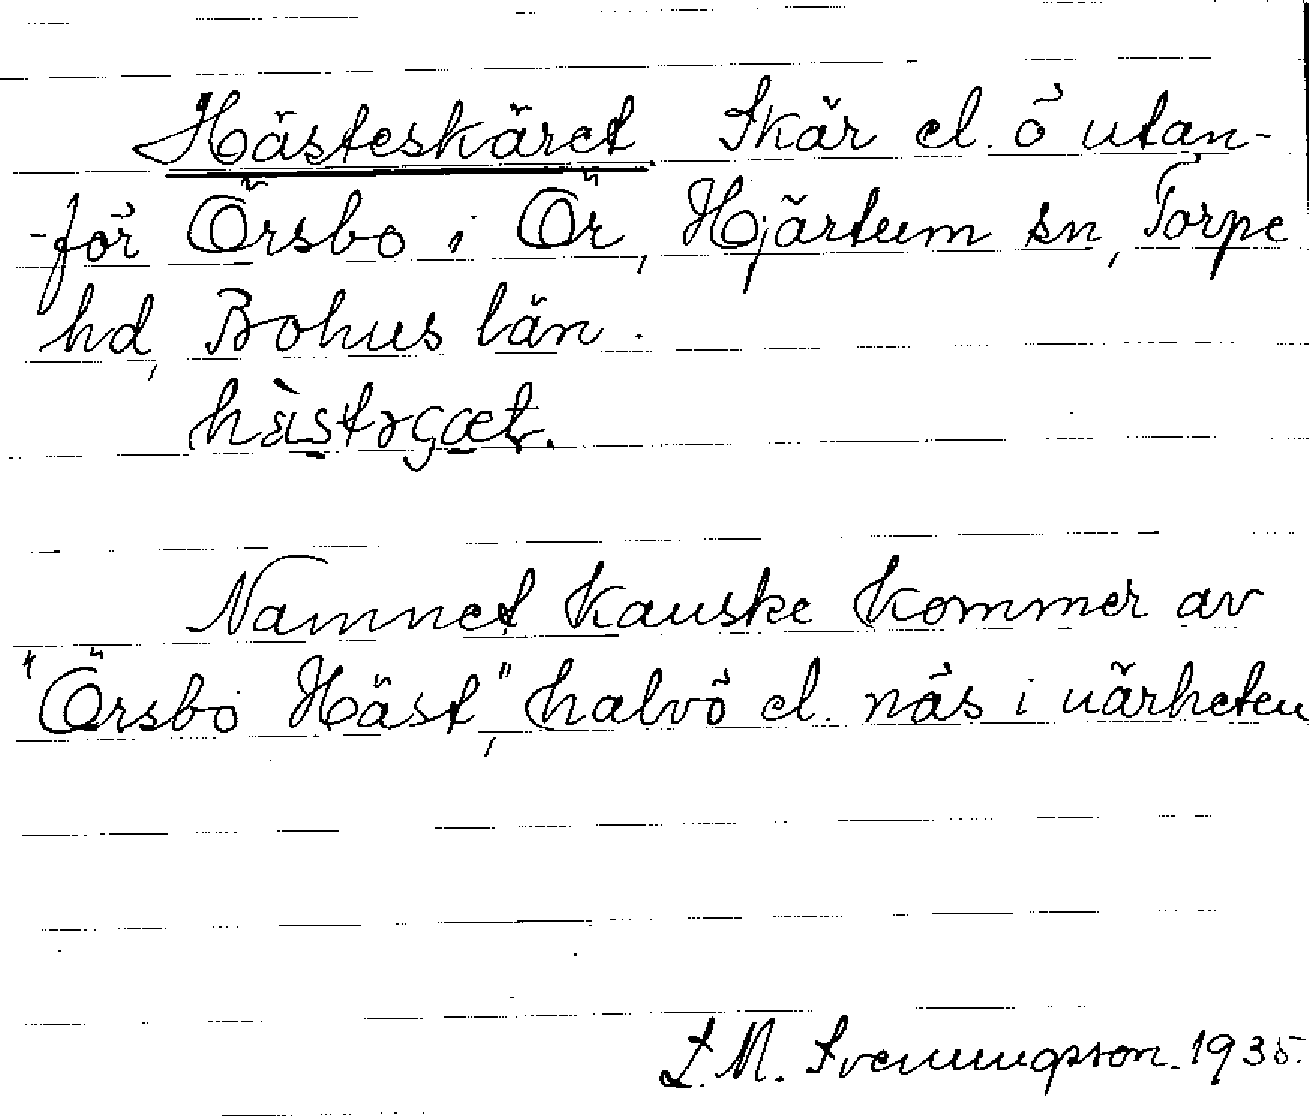 Hästeskäret Skär el. ö utan-
-för Örsbo i Ör, Hjärtum sn, Torpe
hd, Bohus län.
Namnet kanske kommer av
"Örsbo Häst," halvö el. näs i närheten
S. M. Svenungsson. 1935.